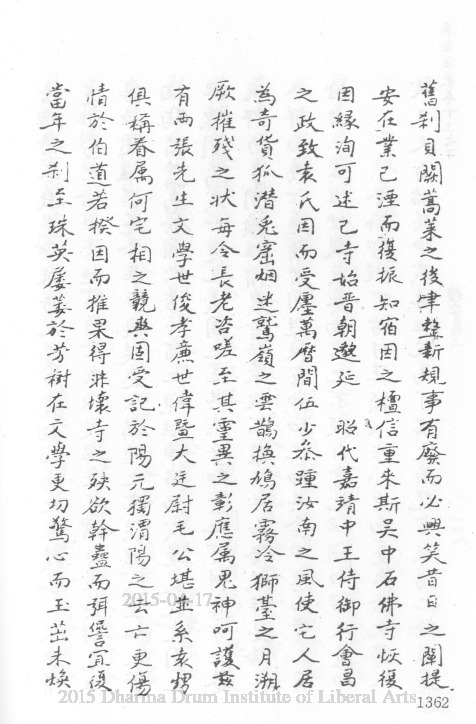 舊剎貝闕蒿萊之後聿整新規事有廢而必興笑昔日之闡提
安在業已湮而復振知宿因之檀信重來斯吳中石佛寺恢復
因緣洵可述已寺始晉朝邈延 昭代嘉靖中王侍御行會昌
之政致袁氏因而受廛萬曆間伍少參踵汝南之風使宅人居
為奇貨狐潛兎窟烟迷鷲嶺之雲鵲換鳩居霧冷獅臺之月溯
厥摧殘之狀每令長老咨嗟至其靈異之彰應屬鬼神呵護茲
有兩張先生文學世俊孝廉世偉暨大廷尉毛公堪並系袁甥
俱稱眷屬何宅相之競興固受記於陽元獨渭陽之云亡更傷
情於伯道若揆因而推果得非壞寺之殃欲幹蠱而弭愆宜復
當年之剎至珠英屢萎於芳樹在文學更切驚心而玉茁未煥
2015-04-17
2015 Dharma Drum Institute of Liberal Arts
1362